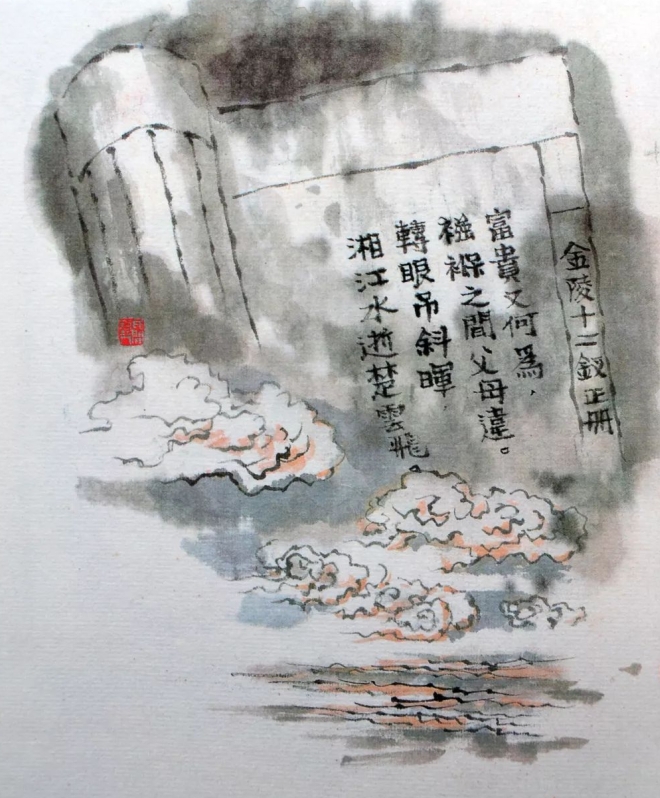 金陵十二釵正册
富貴又何爲，
襁褓之間父母違。
轉眼吊斜暉
湘江水逝楚雲飛。